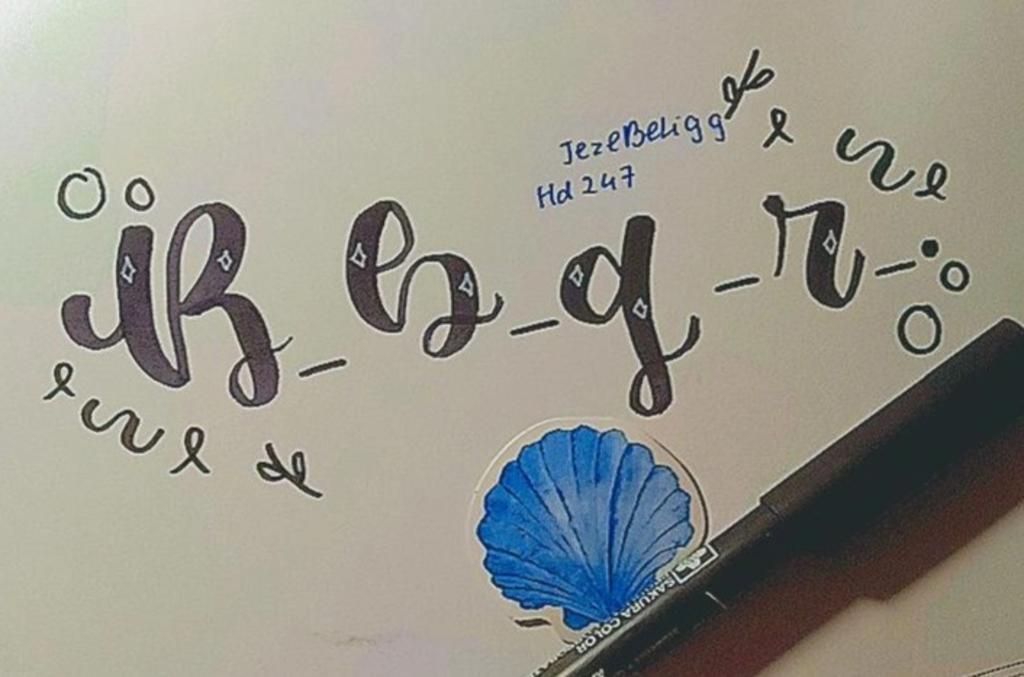 JezeBeligg
Hd 247
R_s_q_r_
SAKURA COLOR